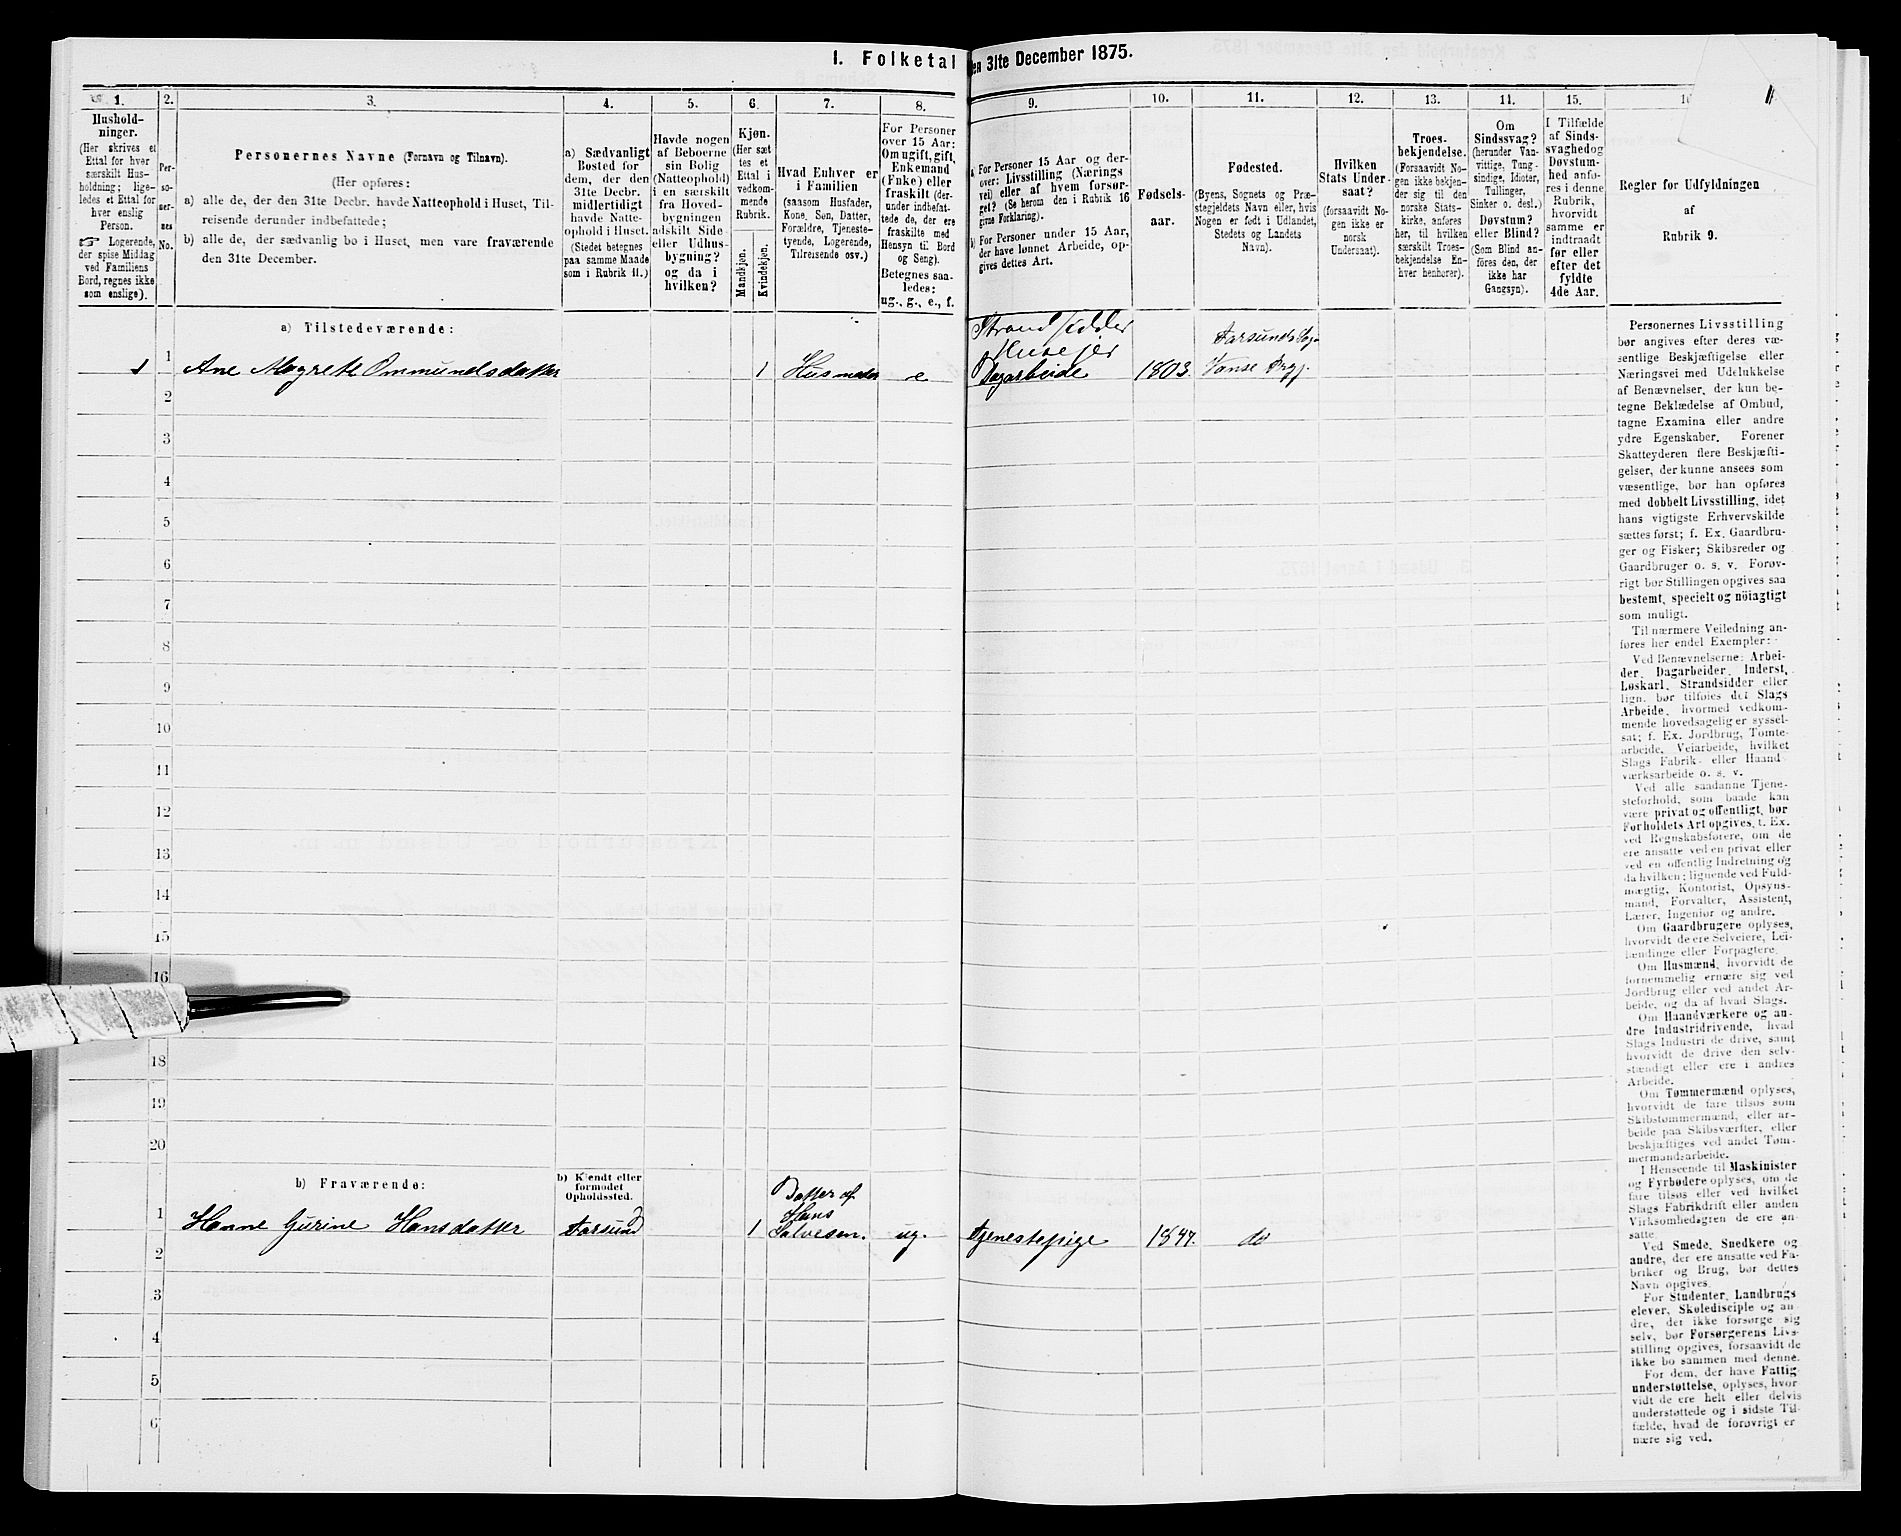 I. Folketal
en 31te December 1875.
1.
2.
3.
4.
5.
6.
7.
8.
9.
10.
11.
12.
13.
14.
15.
Hushold-
ninger.
(Her skrives et
Ettal for hver
særskilt Hus-
holdning; lige-
ledes et Ettal for
hver enslig
Person.
☞ Logerende,
der spise Middag
ved Familiens
Bord, regnes ikke
som enslige).
Per-
so-
ner-
nes
No.
Personernes Navne (Fornavn og Tilnavn).
(Her opføres:
a) alle de, der den 31te Decbr. havde Natteophold i Huset, Til-
reisende derunder indbefattede;
b) alle de, der sædvanlig bo i Huset, men vare fraværende
den 31te December.
a) Sædvanligt
Bosted for
dem, der den
31te Decbr.
midlertidigt
havde Natte-
ophold i Huset.
(Stedet betegnes
paa samme Maade
som i Rubrik 11.)
Havde nogen
af Beboerne
sin Bolig
(Natteophold)
i en særskilt
fra Hoved-
bygningen
adskilt Side-
eller Udhus-
bygning?
og da i
hvilken?
Kjøn.
(Her sæt
tes et
Ettal i
vedkom-
mende
Rubrik.
Mandkjøn.
Kvindekjøn.
Hvad Enhver er
i Familien
(saasom Husfader,
Kone, Søn, Datter,
Forældre, Tjeneste-
tyende, Logerende,
Tilreisende osv.)
For Personer
over 15 Aar:
Om ugift, gift,
Enkemand
(Enke) eller
fraskilt (der-
under indbefat-
tede de, der ere
fraskilte med
Hensyn til Bord
og Seng).
Betegnes saa-
ledes:
ug., g., e., f.
a) For Personer 15 Aar og der-
over: Livsstilling (Nærings
vei) eller af hvem forsør-
get? (Se herom den i Rubrik 16
givne Forklaring).
b) For Personer under 15 Aar,
der have lønnet Arbeide, op-
gives dettes Art.
Fødsels-
aar.
Fødested.
(Byens, Sognets og Præ-
stegjeldets Navn eller, hvis
Nogen er født i Udlandet,
Stedets og Landets
Navn).
Hvilken
Stats Under-
saat?
(forsaavidt No-
gen ikke er
norsk
Undersaat).
Troes-
bekjendelse.
(Forsaavidt No-
gen ikke bekjen-
der sig til den
norske Stats-
kirke, anføres
her, til hvilken
særskilt Troes-
bekjendelse En-
hver henhører).
Om
Sindssvag?
(herunder Van-
vittige, Tung-
sindige, Idioter,
Tullinger,
Sinker o. desl.)
Døvstum?
eller Blind?
(Som Blind an-
föres den, der
ikke har
Gangsyn).
I Tilfælde
af Sinds-
svaghed og
Døvstum-
hed anfø-
res i denne
Rubrik,
hvorvidt
samme er
indtraadt
før eller
efter det
fyldte
4de Aar.
Regler for Udfyldningen
af
Rubrik 9.
a) Tilstedeværende:
1 1 Ane Magrete Ommundsdatter 1 Husmoder e Strandsidder Huseejer Dagarbeide 1803. Farsunds Vanse Prgj.
2
3
4
5
6
7
8
9
10
11
12
13
14
15
16
18
19
20
b) Fraværende:
b) Kjendt eller
formodet
Opholdssted.
1 Hanne Gurine Hansdatter Farsund 1 Datter af Hans Salvesen. ug. Tjenestepige 1847. do
2
3
4
5
6
Personernes Livsstilling
bør angives efter deres væ-
sentlige Beskjæftigelse eller
Næringsvei med Udelukkelse
af Benævnelser, der kun be-
tegne Beklædelse af Ombud,
tagne Examina eller andre
ydre Egenskaber. Forener
Skatteyderen flere Beskjæfti-
gelser, der kunne ansees som
væsentlige, bør han opføres
med dobbelt Livsstilling, idet
hans vigtigste Erhvervskilde
sættes først; f. Ex. Gaardbru-
ger og Fisker; Skibsreder og
Gaardbruger o. s. v. Forøv-
rigt bør Stillingen opgives saa
bestemt, specielt og nöiagtigt
som muligt.
Til nærmere Veiledning an-
føres her endel Exempler:
Ved Benævnelserne: Arbei-
der, Dagarbeider, Inderst,
Løskarl, Strandsidder eller
lign. bør tilføies det Slags
Arbeide, hvormed vedkom-
mende hovedsagelig er syssel-
sat; f. Ex. Jordbrug, Tomte-
arbeide, Veiarbeide, hvilket
Slags Fabrik- eller Haand-
værksarbeide o. s. v.
Ved alle saadanne Tjene-
steforhold, som baade kan
være privat og offentligt, bør
Forholdets Art opgives, t. Ex.
ved Regnskabsførere, om de
ere ansatte ved en privat eller
ved en offentlig Indretning og
da hvilken; lignende ved Fuld-
mægtig, Kontorist, Opsyns-
mand, Forvalter, Assistent,
Lærer, Ingeniør og andre.
Om Gaardbrugere oplyses,
hvorvidt de ere Selveiere, Lei-
lændinge eller Forpagtere.
Om Husmænd, hvorvidt de
fornemmelig ernære sig ved
Jordbrug eller ved andet Ar-
beide, og da af hvad Slags.
Om Haandværkere og an-
dre Industridrivende, hvad
Slags Industri de drive, samt
hvorvidt de drive den selv-
stændigt eller ere i andres
Arbeide.
Om Tømmermænd oplyses,
hvorvidt de fare tilsøs som
Skibstømmermænd, eller ar-
beide paa Skibsværfter, eller
beskjæftiges ved andet Tøm-
mermandsarbeide.
I Henseende til Maskinister
og Fyrbødere oplyses, om de
fare tilsøs eller ved hvilket
Slags Fabrikdrift eller anden
Virksomhed de ere an-
satte.
Ved Smede, Snedkere og
andre, der ere ansatte ved Fa-
briker og Brug, bør dettes
Navn opgives.
For Studenter, Landbrugs
elever, Skoledisciple og an-
dre, der ikke forsørge sig
selv, bør Forsørgerens Livs-
stilling opgives, forsaavidt de
ikke bo sammen med denne.
For dem, der have Fattig-
understøttelse, oplyses, hvor
vidt de ere helt eller delvis
understøttede og i sidste Til-
fælde, hvad de forøvrigt er
nære sig ved.